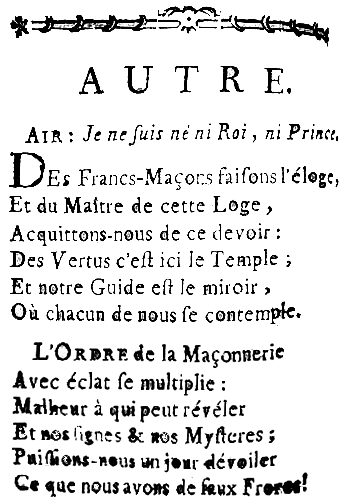 AUTRE.
AIR: Je ne ſuis né ni Roi, ni Prince.
DEs Francs-Maçons faiſons l'éloge,
Et du Maître de cette Loge,
Acquittons-nous de ce devoir:
Des Vertus c'eſt ici le Temple;
Et notre Guide eſt le miroir,
Où chacun de nous ſe contemple.
L'ORDRE de la Maçonnerie
Avec éclat ſe multiplie:
Malheur à qui peut révéler
Et nos ſignes & nos Myſteres;
Puiſſions-nous un jour dévoiler
Ce que nous avons de faux Freres!